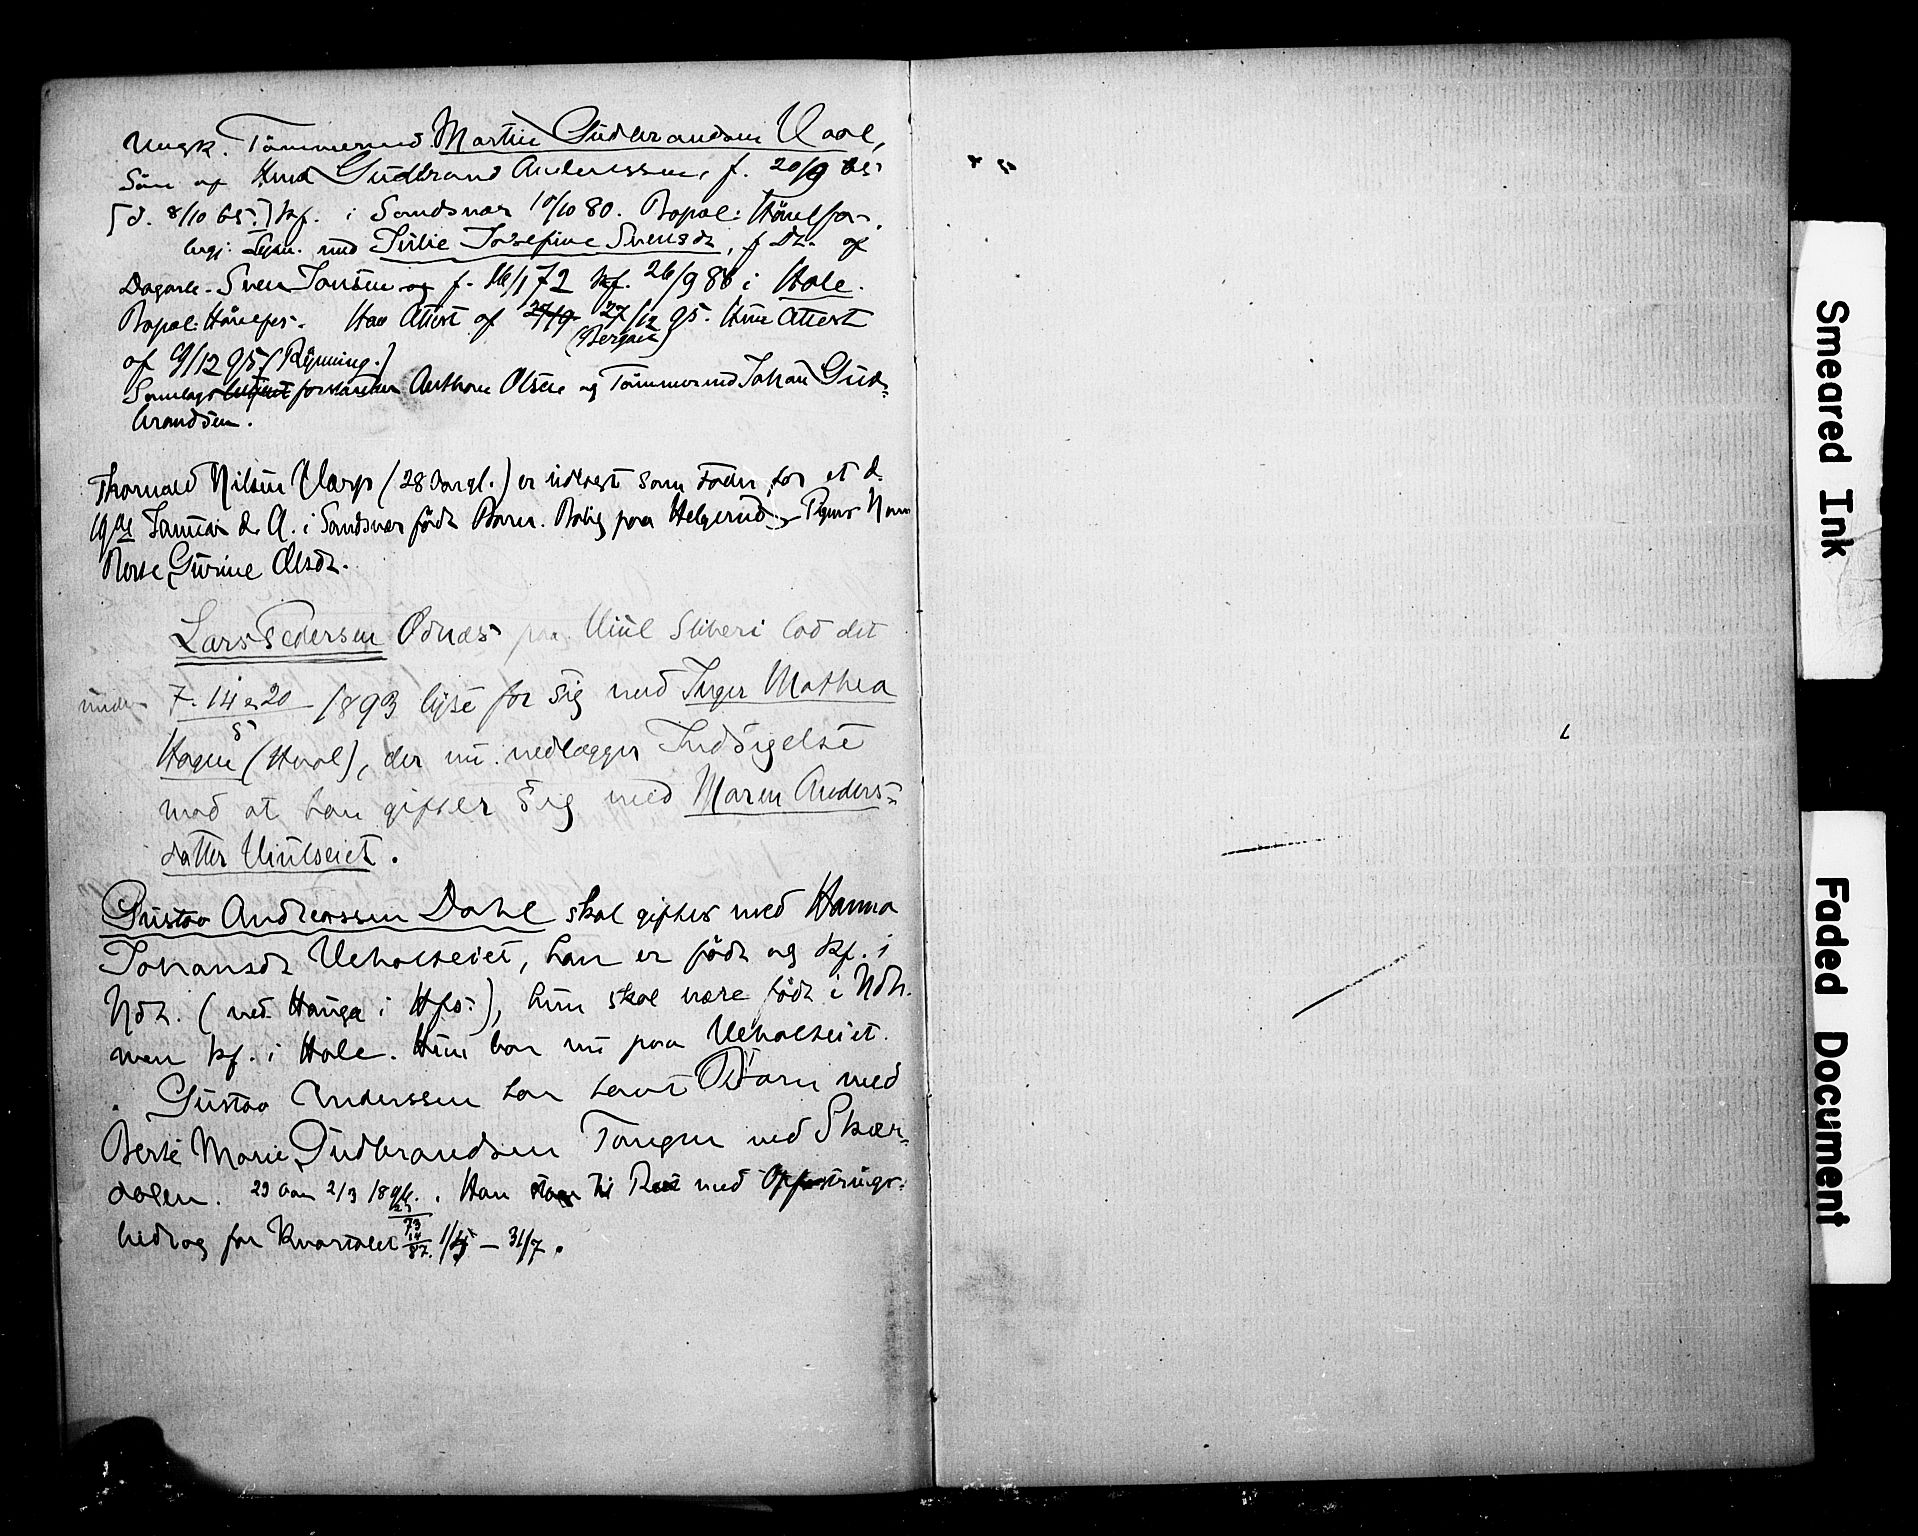 Ungk. Tømmermd. Martin Gudbrandsen Vaal,
Søn af Gudbrand Anderssen, f. 20/9 65
[d. 8/10 65.] kf. i Sandsvær 10/10 80. Bopæl: Hønefos.
med Julie Josefine Svensdt, f Dt. af
Dagarb. Sven Jonsen og f. 16/1 72 kf. 26/9 86 i Hole.
Bopæl: Hønefos. Han Attest af 27/12 95. Hun Attest
(Bergan)
af 9/12 95 (Rynning.)
forstander Anthon Olsen og Tømmermd Johan Gud-
brandsen.
Thorvald Nilsen (28 Aar gl.) er udlagt som Fader for et d.
19de Januar d. A. i Sandsvær født Barn. Bolig paa Helgerud, Pigens Navn
Berte Gurine Olsdt.
Lars Pedersen Odnæs paa Viul Sliberi lod det
under 7. 14 & 20 1893 lyse for sig med Inger Mathea
5
Hagen (Hval), der nu nedlægger Indsigelse
mod at han gifter sig med Maren Anders-
datter Viulseiet.
Gustav Anderssen Dahl skal giftes med Hanna
Johansdt Veholtseiet, han er født og kf. i
Ndh. (ved Hauga i Hfos.), hun skal være født i Ndh.
men kf. i Hole. Hun bor nu paa Veholtseiet.
Gustav Anderssen har havt Barn med
Berte Marie Gudbrandsen Tangen ved Skjær-
dalen. 23 Aar 2/3 1896. Han til Rest med Opfostrings-
bidrag for Kvartalet 1/5 – 31/7.
73
14
87.
Smeared Ink
Faded Document